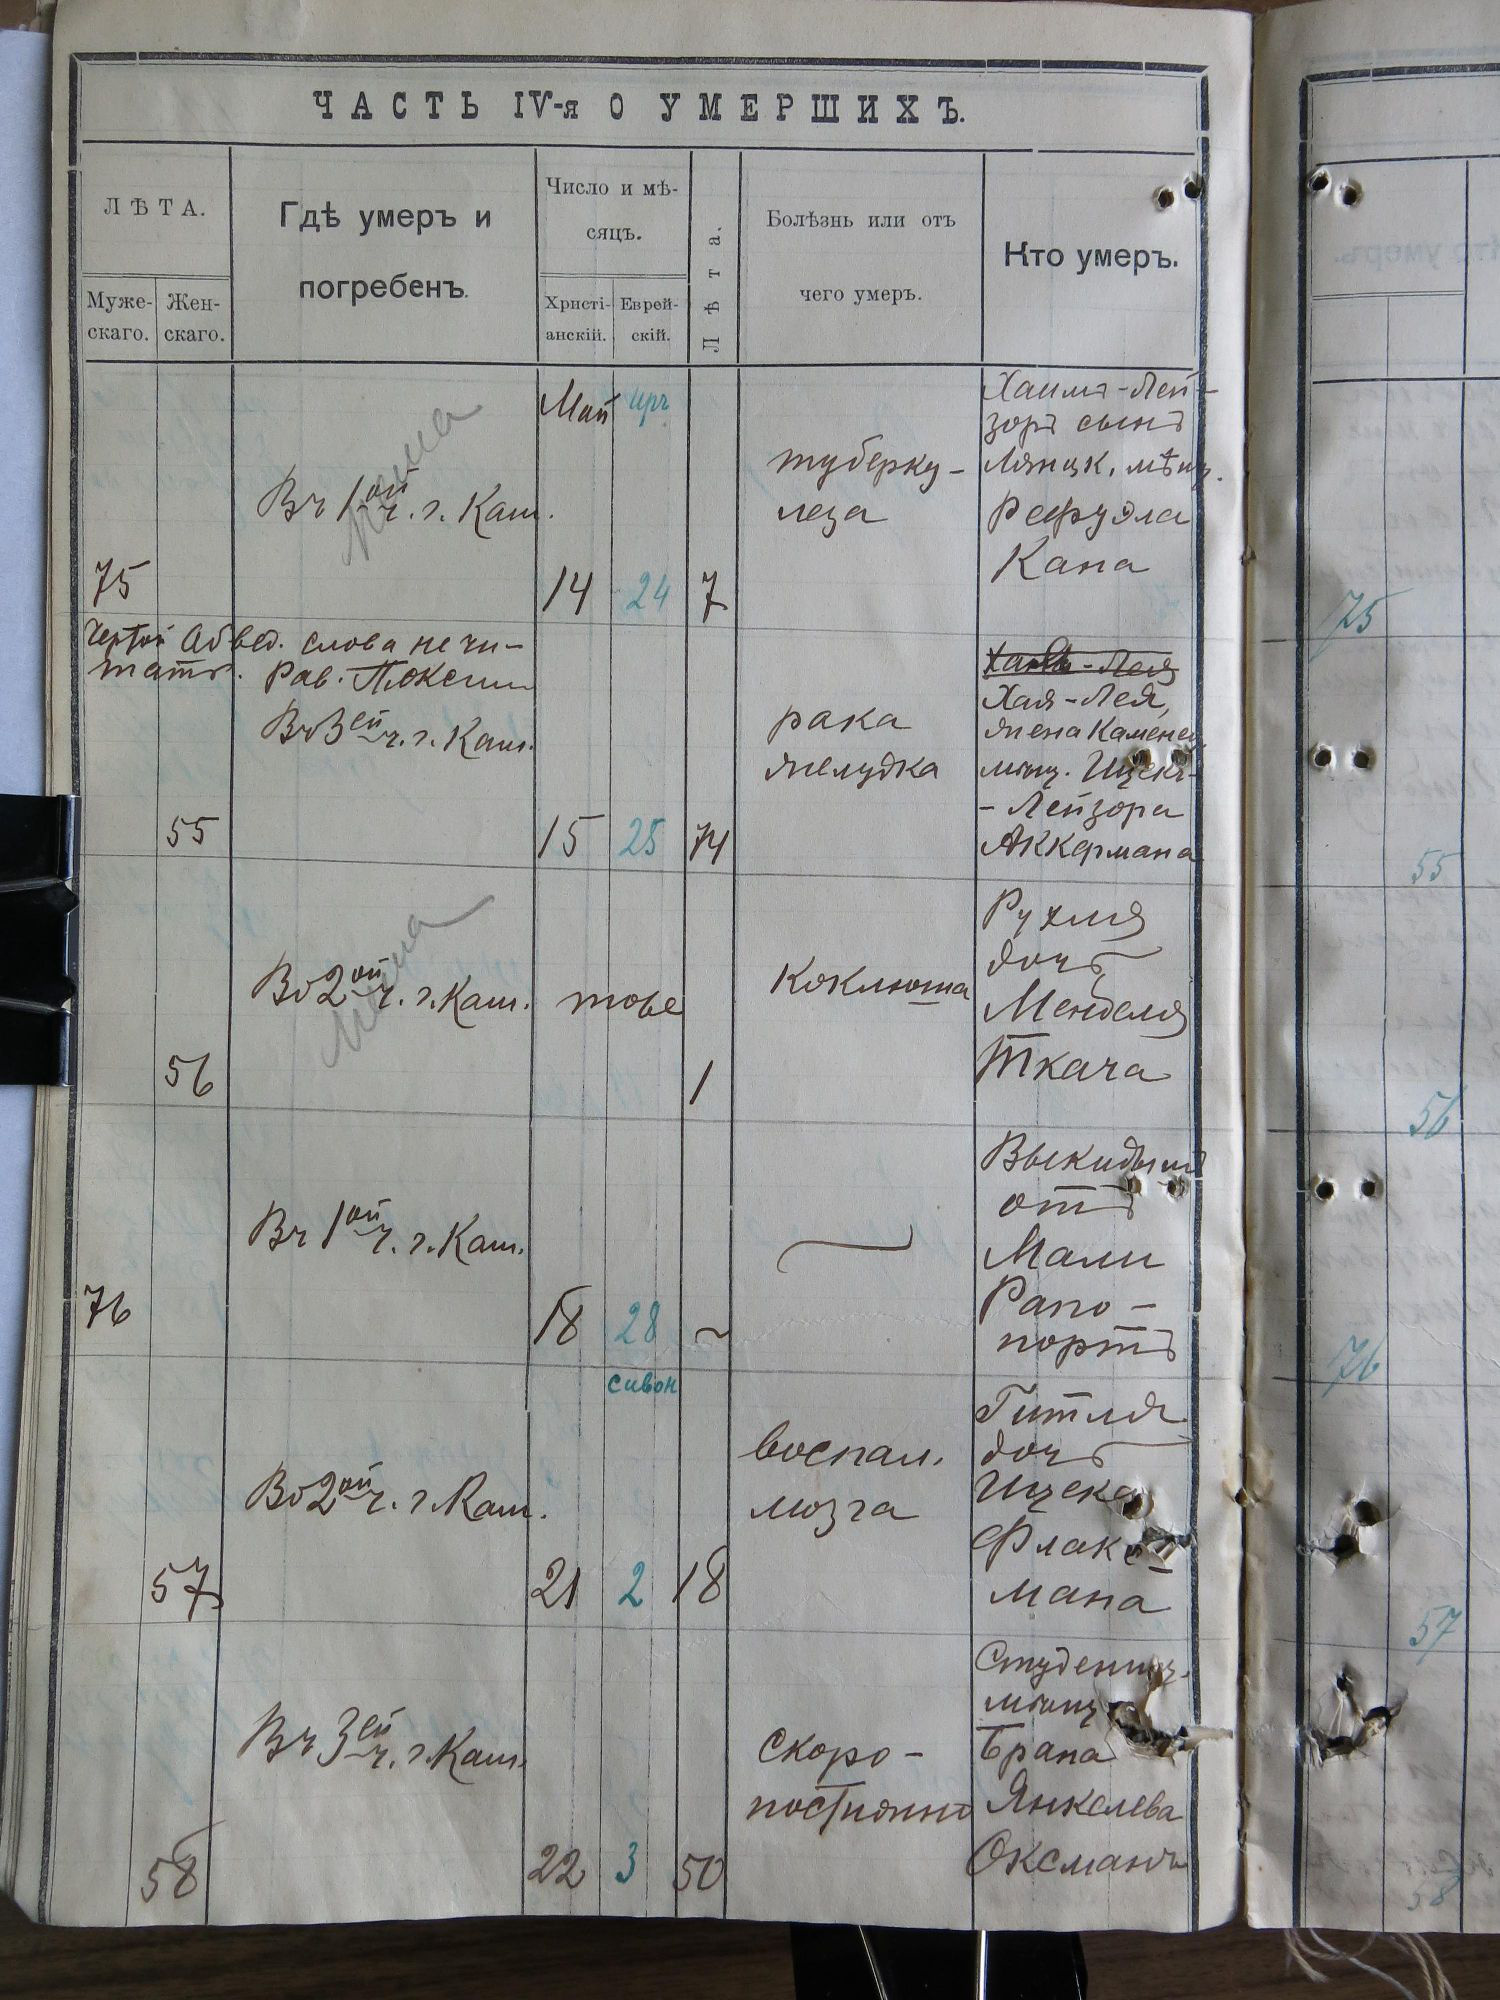 ЧАСТЬ IV-я О УМЕРШИХЪ.
ЛѢТА.
Муже-
скаго.
Жен-
скаго.
Гдѣ умеръ и
погребенъ.
Число и мѣ-
сяцъ.
Христі-
анскій.
Еврей-
скій.
Лѣта.
Болѣзнь или отъ
чего умеръ.
Кто умеръ.
Май иръ
Въ 1ой ч. г. Кам.
75
14 24 7
туберку-
леза
Хаимъ-Лей-
зоръ сынъ
Ляцк. мѣщ.
Рефуэла
Кана
Чертой обвед. слова не чи-
тать. Рав.
Въ 3ей ч. г. Кам.
55
15 25 74
рака
желудка
Хая-Лея,
жена Каменец.
мѣщ. Ицека-
-Лейзора
Аккермана
Во 2ой ч. г. Кам.
тоже
56
1
коклюша
Рухля
дочь
Менделя
Ткача
Въ 1ой ч. г. Кам.
76
18 28 ~
Выкидышъ
отъ
Мали
Рапо-
портъ
сивон
Во 2ой ч. г. Кам.
57
21 2 18
воспал.
мозга
Гитля
дочь
Ицека
Флакс
мана
Въ 3ей ч. г. Кам.
58
22 3 50
скоро-
постижно
Студениц.
мѣщ
Брана
Янкелева
Оксманъ
75
55
56
76
57
58